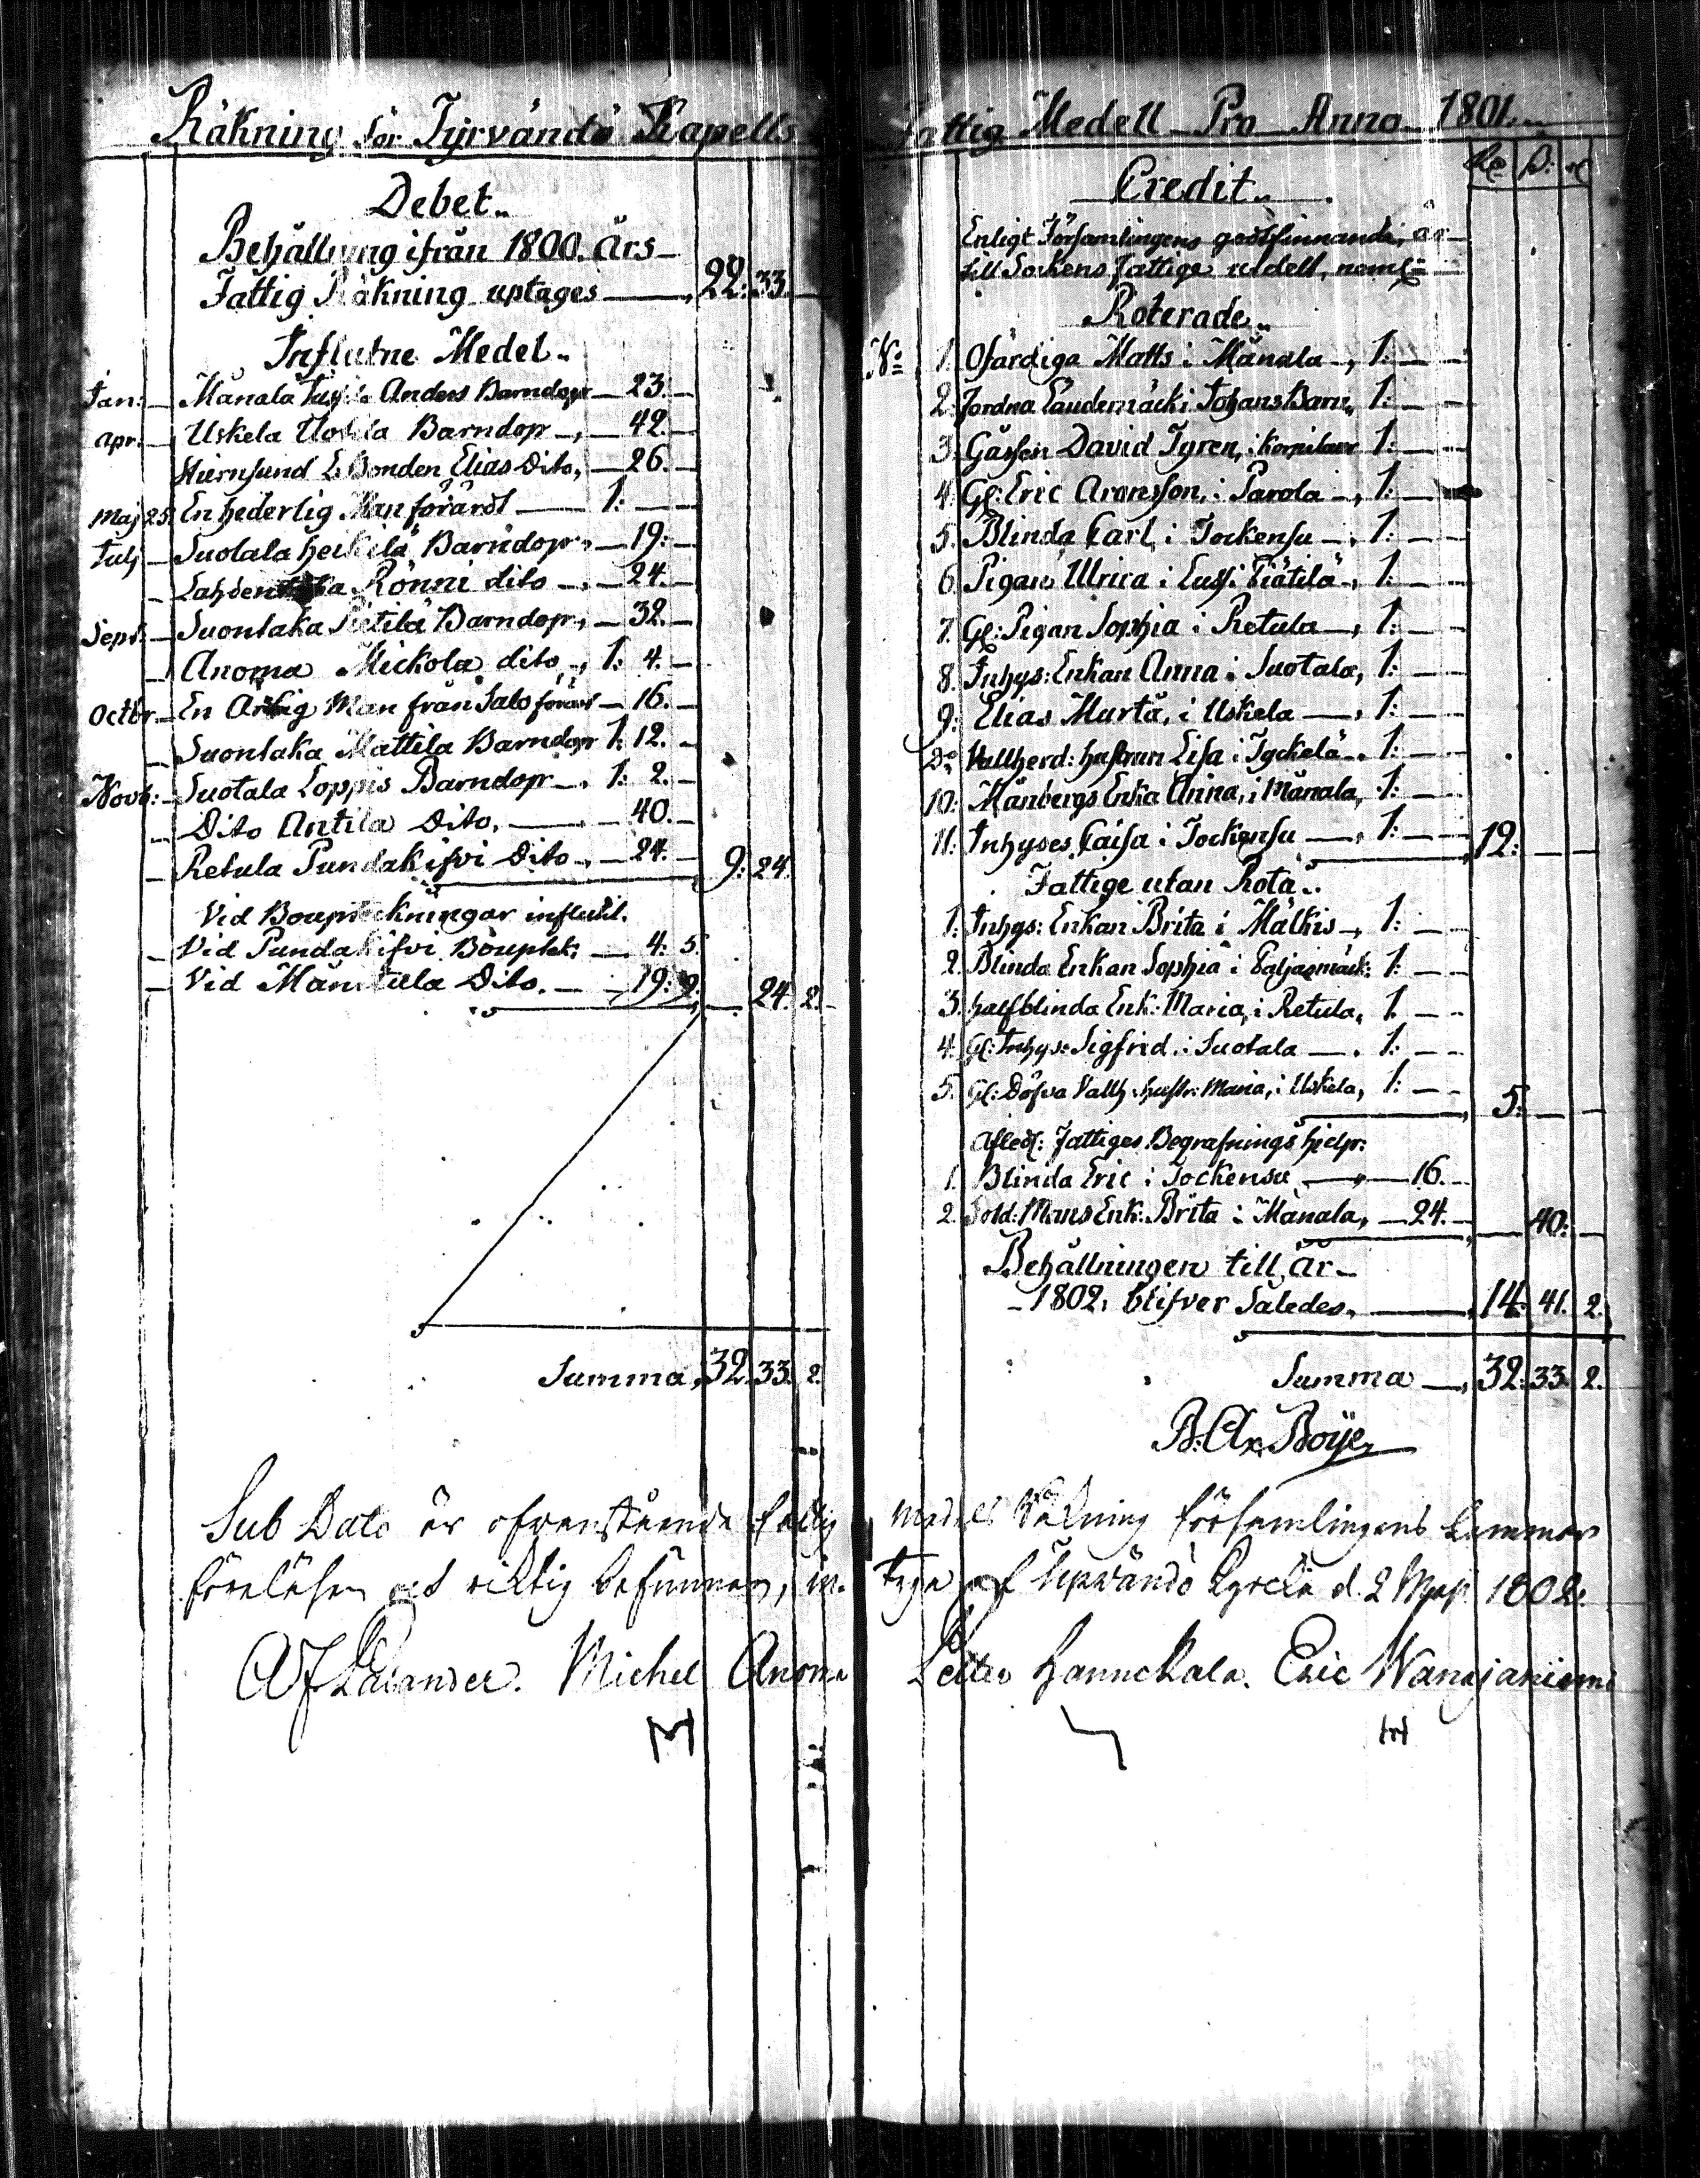 Räkning för Tyrvändö Kapells Fattig Medell Pro Anno 1801
Debet
Behållning ifrån 1800. Års
Fattig Räkning uptages 22: 33.
Influtne Medel
Jan: Mänala Anders Barndop 23.
Apr. Uskela Barndop 42.
Hiernsund Bonden Elias Dito, 26.
Maj 25 En hederlig Man förärdt 1:
Julj Suotala Heikilä Barndop 19:
Rönni dito 24.
Sept. Suontaka Pietilä Barndop, 32.
Anoma Mickola dito, 1: 4.
Octbr. En Ärlig Man från Salo förärt 16.
Suontaka Mattila Barndop 1: 12.
Novb: Suotala Loppis Barndop 1: 2.
Dito Antila Dito. 40.
Retula Pundakifvi Dito 24. 9: 24.
Vid Bouptekningar influtit.
Vid Pundakifvi Bouptek: 4: 5.
Vid Mänitula Dito. 19: 9. 24. 2.
Summa, 32. 33. 2.
Rd ß: rs
Credit
Enligt Församlingens godtfinnande, är
till Sockens Fattige utdelt, neml:
Roterade
No 1. Ofärdiga Matts i Mänala, 1:
2. Johans Barn, 1:
3. Gåssen David Tyren, i 1:
4. Gl: Eric Aronsson, i Parola, 1:
5. Blinda Carl i Tockensu, 1:
6. Pigan Ulrica i Lussi Piätilä, 1:
7. Gl: Pigan Sophia i Retula, 1:
8. Inhys: Enkan Anna i Suotala, 1:
9. Elias Murtä, i Uskela, 1:
Do Vallherd: hustrun Lisa i Tyckelä 1:
10: Mänbergs Enka Anna, i Mänala, 1:
11: Inhyses Caisa i Tockensu, 1: 12:
Fattige utan Rota
1: Inhys: Enkan Brita i Mälkis, 1:
2. Blinda Enkan Sophia i 1:
3. halfblinda Enk: Maria, i Retula, 1.
4. Gl: Inhys: Sigfrid i Suotala 1:
5. Gl: Döfva Vallh: hustr: Maria, i Uskela, 1: 5:
Afled: Fattiges Begrafnings hjelp:
1. Blinda Eric i Tockensu 16.
2. Sold: Mans Enk: Brita i Mänala, 24. 40:
Behållningen till År
1802, blifver Således. 14. 41. 2.
Summa 32: 33. 2.
B: Ax Böije
Sub Dato är ofvanstående fattig Medels Räkning församlingens
föreläsen och riktig befunnen, intyga af Tyrvändö Kyrcka d. 2 Maji 1802.
Michel Anoma Hannckala. Eric Wanajaniemi